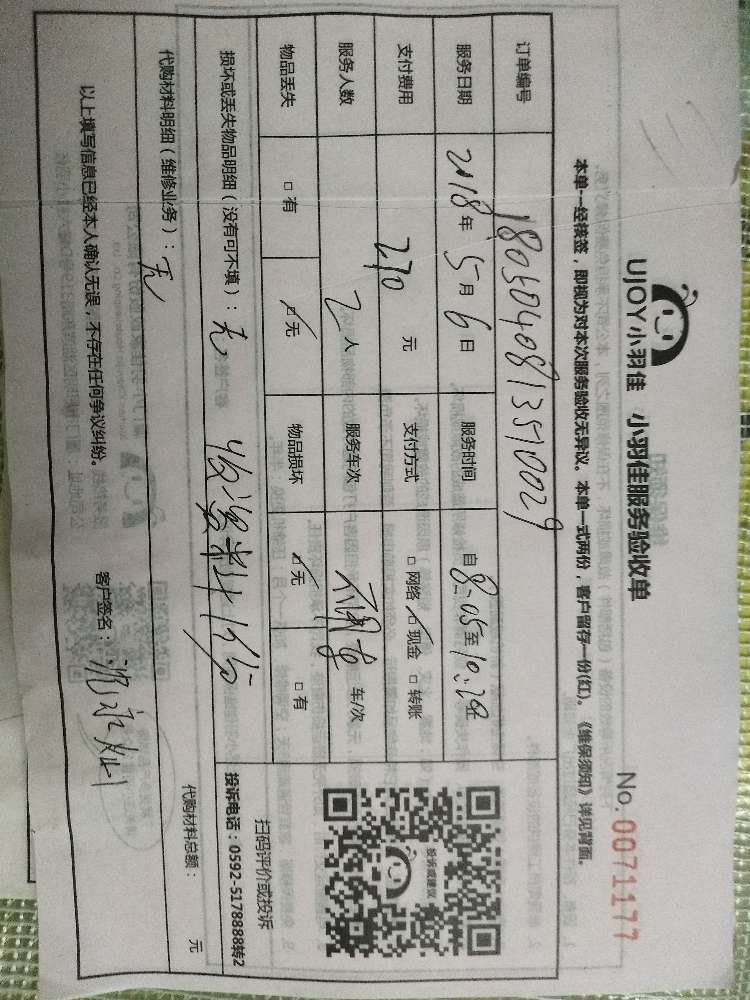 UJOY小羽佳 小羽佳服务验收单
No. 0071177
本单一经核签，即视为对本次服务验收无异议。本单一式两份，客户留存一份(红)。《维保须知》详见背面。
订单编号 1805040813510029
服务日期 2018年5月6日 服务时间 自8:05至10:20
支付费用 270元 支付方式 □网络 ☑现金 □转账
服务人数 2人 服务车次 不用车 车/次
物品丢失 □有 ☑无 物品损坏 ☑无 □有
投诉或建议
扫码评价或投诉
投诉电话：0592-5178888转2
损坏或丢失物品明细（没有可不填）：无 收资料1份
代购材料明细（维修业务）：无 代购材料总额： 元
以上填写信息已经本人确认无误，不存在任何争议纠纷。 客户签名：